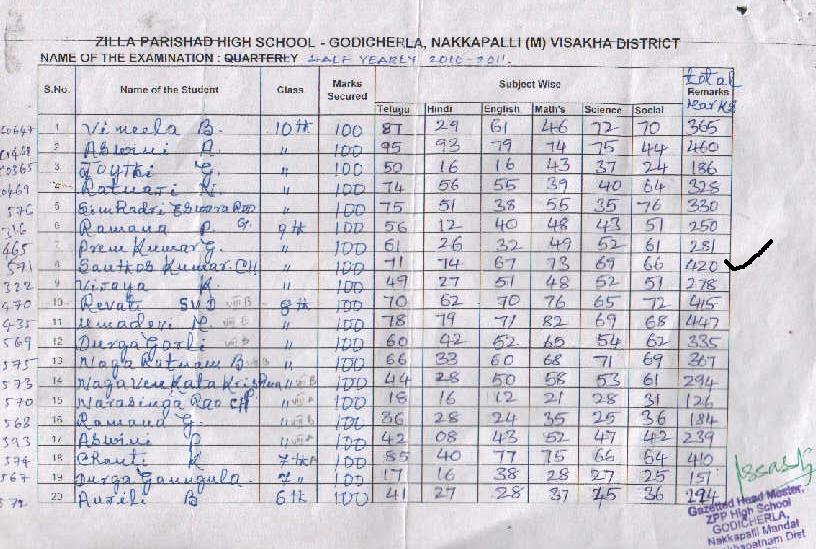 ZILLA PARISHAD HIGH SCHOOL - GODICHERLA, NAKKAPALLI (M) VISAKHA DISTRICT
NAME OF THE EXAMINATION : QUARTERLY HALF YEARLY 2010-2011.
S.No. Name of the Student Class Marks Secured Subject Wise total Remarks Marks
Telugu Hindi English Math's Science Social
1 Vimeela B. 10th 100 87 29 61 46 72 70 365
2 Aswini P. " 100 95 93 79 74 75 44 460
3 Joythi G. " 100 50 16 16 43 37 24 186
Ratnari K. " 100 74 56 55 39 40 64 328
576 5 Simhadri Eswara Rao " 100 75 51 38 55 35 76 330
6 Ramana P. G. 9th 100 56 12 40 48 43 51 250
465 7 Prem Kumar G. " 100 61 26 32 49 52 61 281
591 8 Santhos Kumar.CH " 100 71 74 67 73 69 66 420
322 9 Vijaya K " 100 49 27 51 48 52 51 278
470 10 Revati SVD VIII B 8th 100 70 62 70 76 65 72 415
435 11 Umadevi M. VIII B " 100 78 79 71 82 69 68 447
569 12 Durga Gorli VIII B " 100 60 42 52 65 54 62 335
575 13 Naga Ratnam B VIII B " 100 66 33 60 68 71 69 367
573 14 Naga Venkata Krishna " VIII B 100 44 28 50 58 53 61 294
570 15 Narasinga Rao CH " VIII A 100 18 16 12 21 28 31 126
568 16 Ramana G. " VIII A 100 36 28 24 35 25 36 184
593 17 Aswini P " VIII A 100 42 08 43 52 47 42 239
574 18 Chanti K 7th A 100 85 40 77 75 66 64 410
567 19 Durga Gaungula 7" 100 17 16 38 28 27 25 151
572 20 Aurili B 6th 100 41 27 28 37 25 36
Gazetted Head Master,
ZPP High School
GODICHERLA,
Nakkapalli Mandal
khapatnam Dist